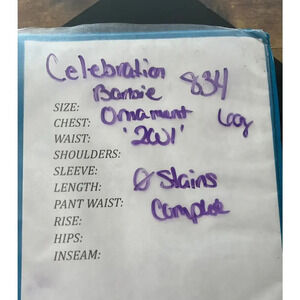 Celebration 834
Barbie
SIZE:
CHEST: Ornament
WAIST: '2001'
SHOULDERS:
SLEEVE: Ø Stains
LENGTH:
PANT WAIST: Complete
RISE:
HIPS:
INSEAM: